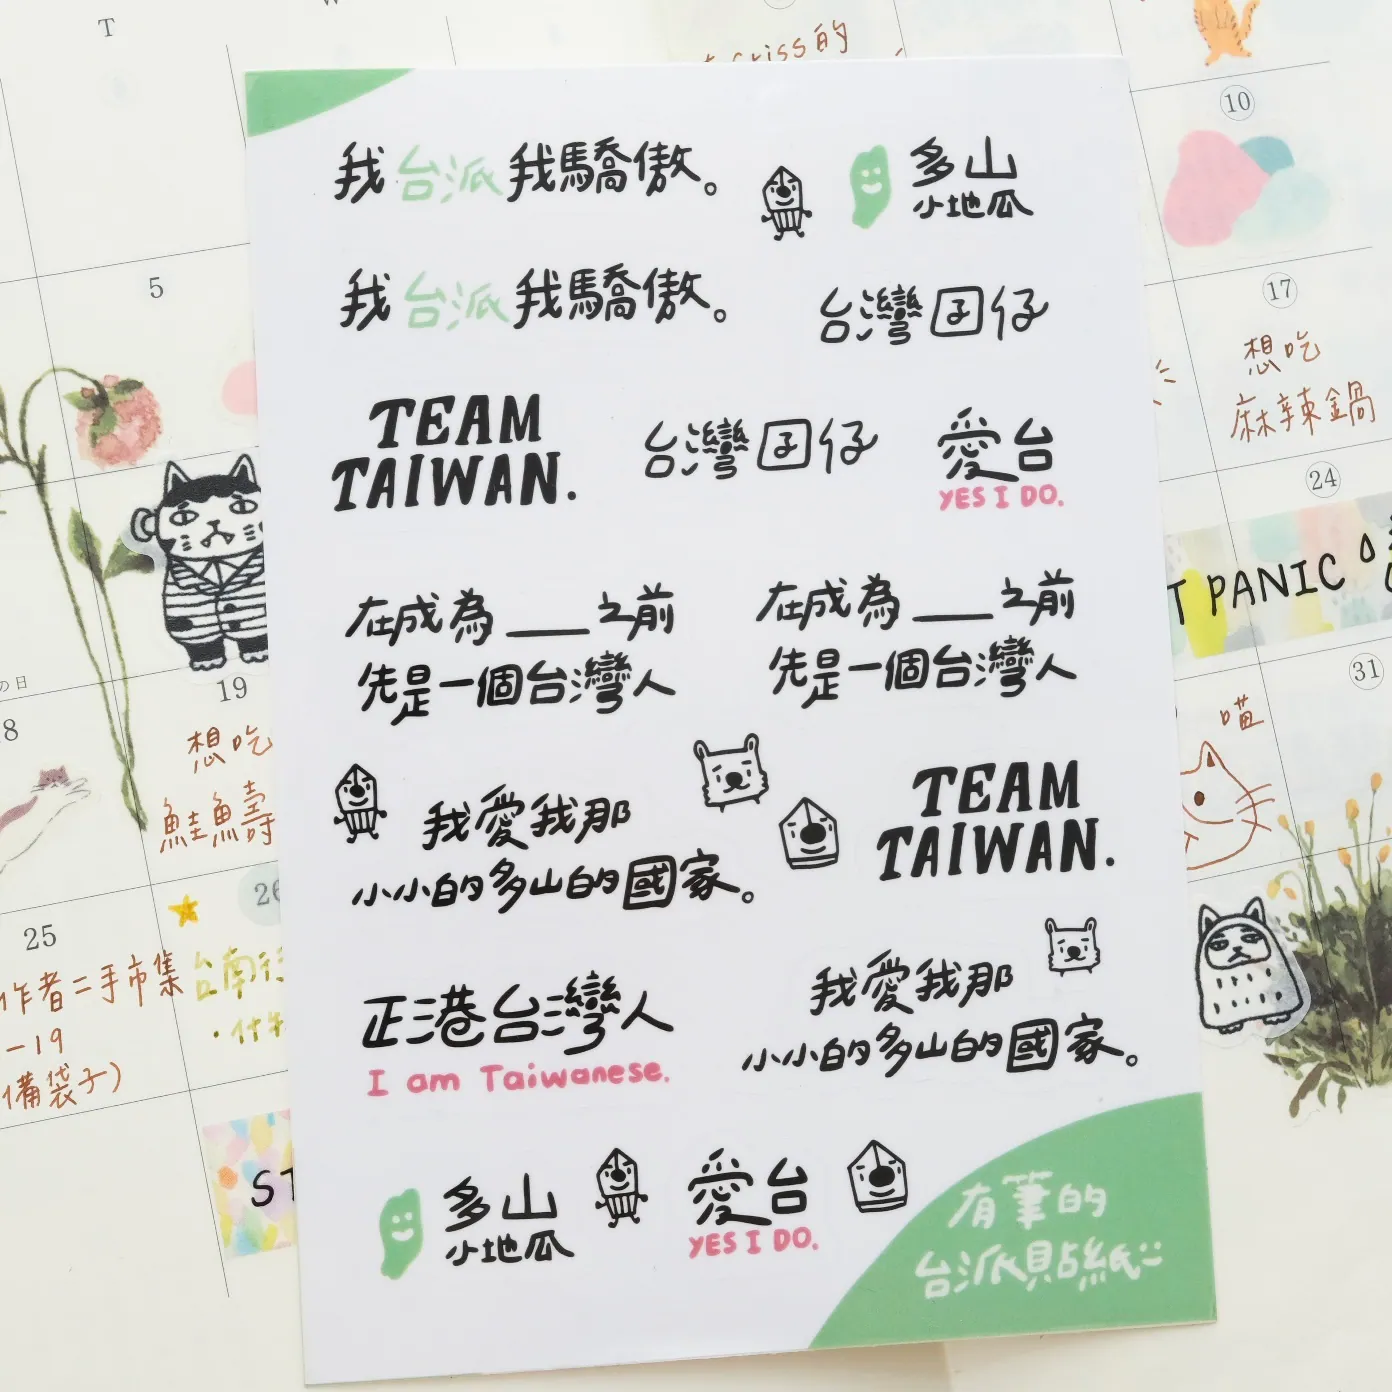 T
Criss的
10
5
17
想吃
麻辣鍋
24
T PANIC
の日
19
想吃
鮭魚壽
31
喵
25
26
作者二手市集
-19
備袋子)
台南
ST
我台派我驕傲。
多山
小地瓜
我台派我驕傲。
台灣囝仔
TEAM
TAIWAN.
台灣囝仔
愛台
YES I DO.
在成為___之前
先是一個台灣人
在成為___之前
先是一個台灣人
我愛我那
小小的多山的國家。
TEAM
TAIWAN.
正港台灣人
I am Taiwanese.
我愛我那
小小的多山的國家。
多山
小地瓜
愛台
YES I DO.
有筆的
台派貼紙